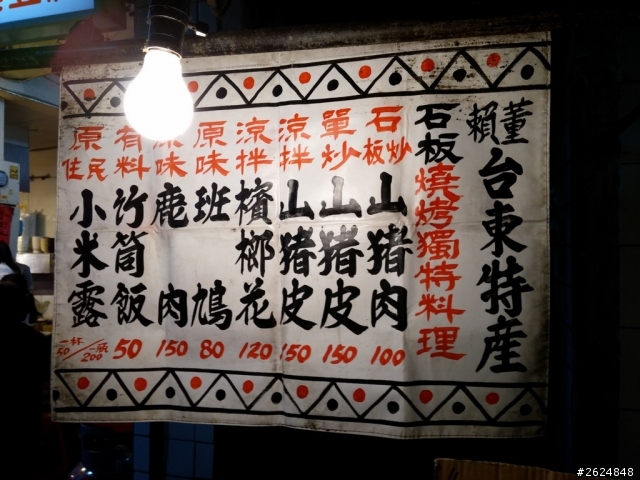 賴董
台東特産
石板燒烤獨特料理
石板炒山猪肉100
單炒山猪皮150
涼拌山猪皮150
涼拌檳榔花120
原味班鳩80
原味鹿肉150
有料竹筒飯50
原住民小米露一杯50/一瓶200
#2624848